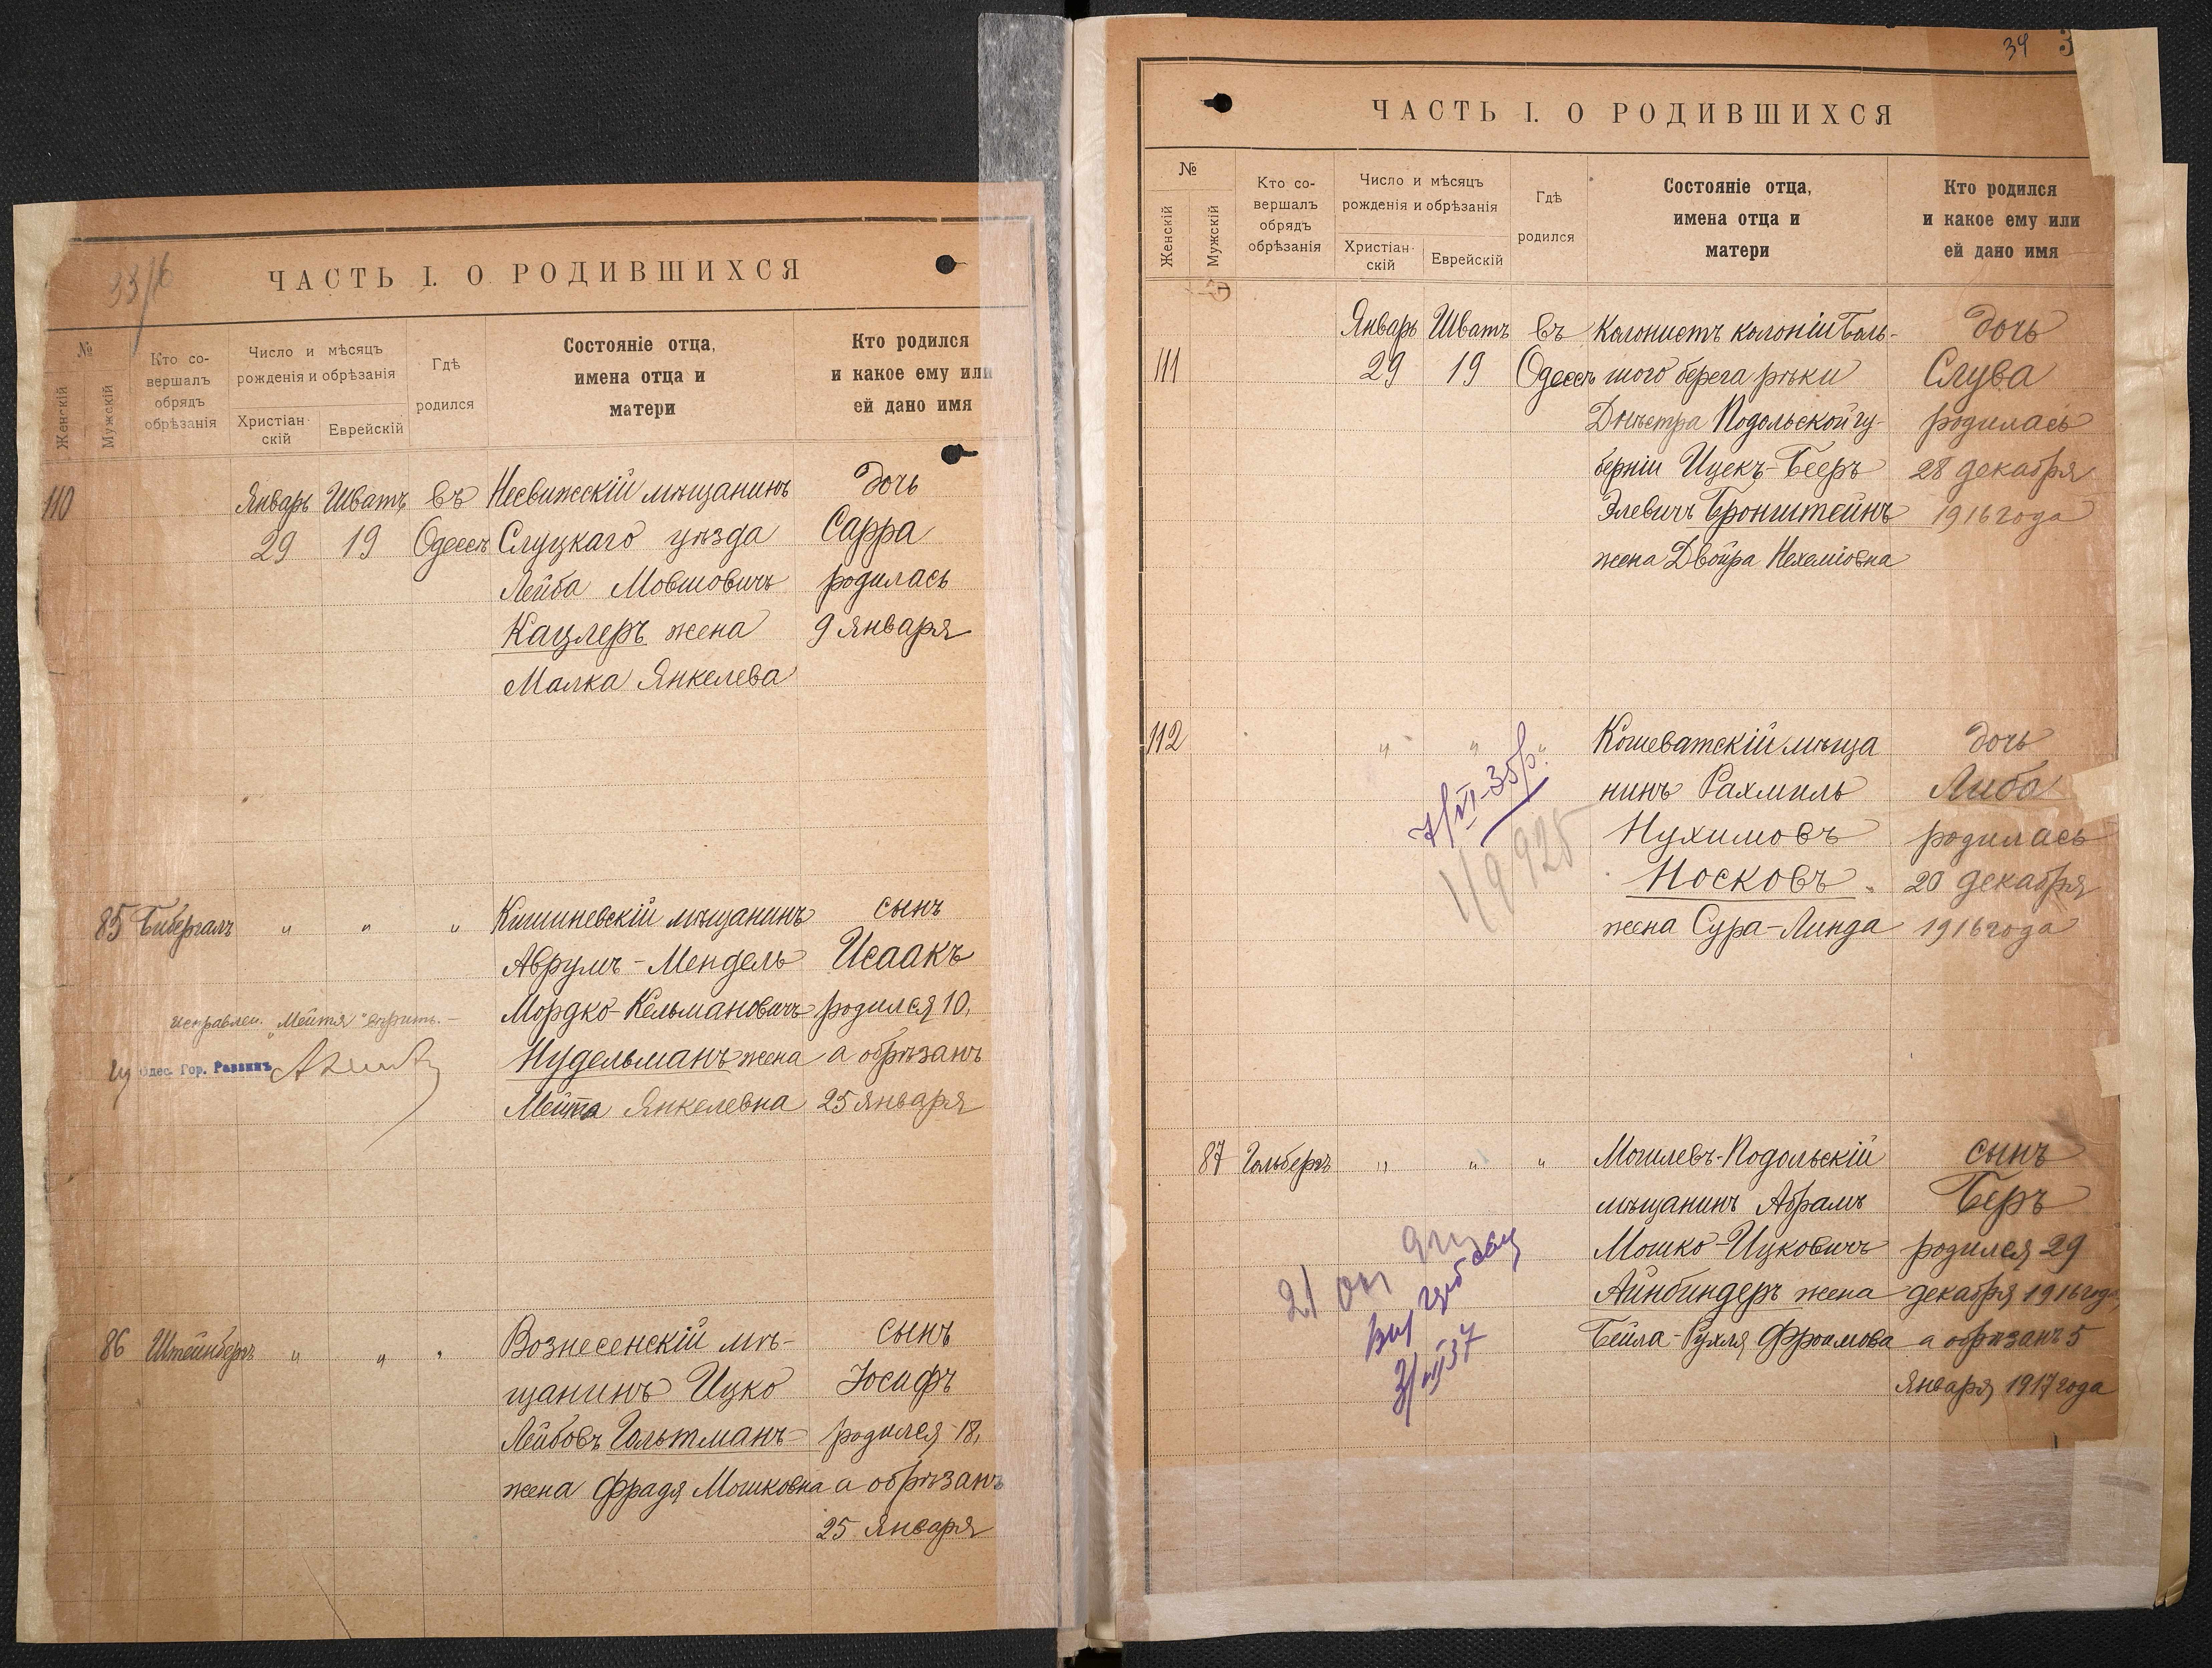 33/16
ЧАСТЬ I. О РОДИВШИХСЯ
№
Женскій
Мужскій
Кто со-
вершалъ
обрядъ
обрѣзанія
Число и мѣсяцъ
рожденія и обрѣзанія
Христіан-
скій
Еврейскій
Гдѣ
родился
Состояніе отца,
имена отца и
матери
Кто родился
и какое ему или
ей дано имя
110
Январь Шватъ въ Несвижскій мѣщанинъ дочь
29 19 Одессѣ Слуцкаго уѣзда Сарра
Лейба Мовшовичъ родилась
Кацлеръ жена 9 января
Малка Янкелева
85 Бибергалъ " " " Кишиневскій мѣщанинъ сынъ
Аврумъ-Мендель Исаакъ
Мордко-Кельмановичъ родился 10,
исправлен. "Мейтя" вѣрить.
Нудельманъ жена а обрѣзанъ
Одес. Гор. Раввинъ
Мейтя Янкелевна 25 января
86 Штейнбергъ " " " Вознесенскій мѣ- сынъ
щанинъ Ицко Іосифъ
Лейбовъ Гольтманъ родился 18,
жена Фрадя Мошковна а обрѣзанъ
25 января
34 3
ЧАСТЬ I. О РОДИВШИХСЯ
№
Женскій
Мужскій
Кто со-
вершалъ
обрядъ
обрѣзанія
Число и мѣсяцъ
рожденія и обрѣзанія
Христіан-
скій
Еврейскій
Гдѣ
родился
Состояніе отца,
имена отца и
матери
Кто родился
и какое ему или
ей дано имя
Январь Шватъ въ Колонистъ колоніи Боль- дочь
111 29 19 Одессѣ шого берега рѣки Слува
Днѣстра Подольской гу- родилась
берніи Ицек-Бееръ 28 декабря
Элевичъ Бронштейнъ 1916 года
жена Двойра Нехеміовна
112 " " " Кошеватскій мѣща дочь
нинъ Рахмиль Либа
7/VI-35р.
Нухимовъ родилась
119925
Носковъ 20 декабря
жена Сура-Линда 1916 года
87 Гольбергъ " " " Могилевъ-Подольскій сынъ
мѣщанинъ Абрамъ Беръ
Мошко-Ицковичъ родился 29
Айнбиндеръ жена декабря 1916 года,
Бейла-Рухля Фроимова а обрѣзанъ 5
января 1917 года
21
3/III 37